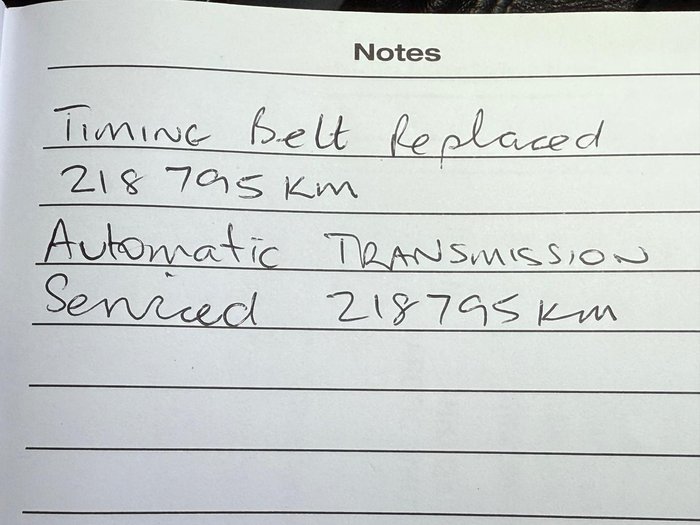 Notes
Timing Belt Replaced
218 795 km
Automatic TRANSMISSION
Serviced 218795 km